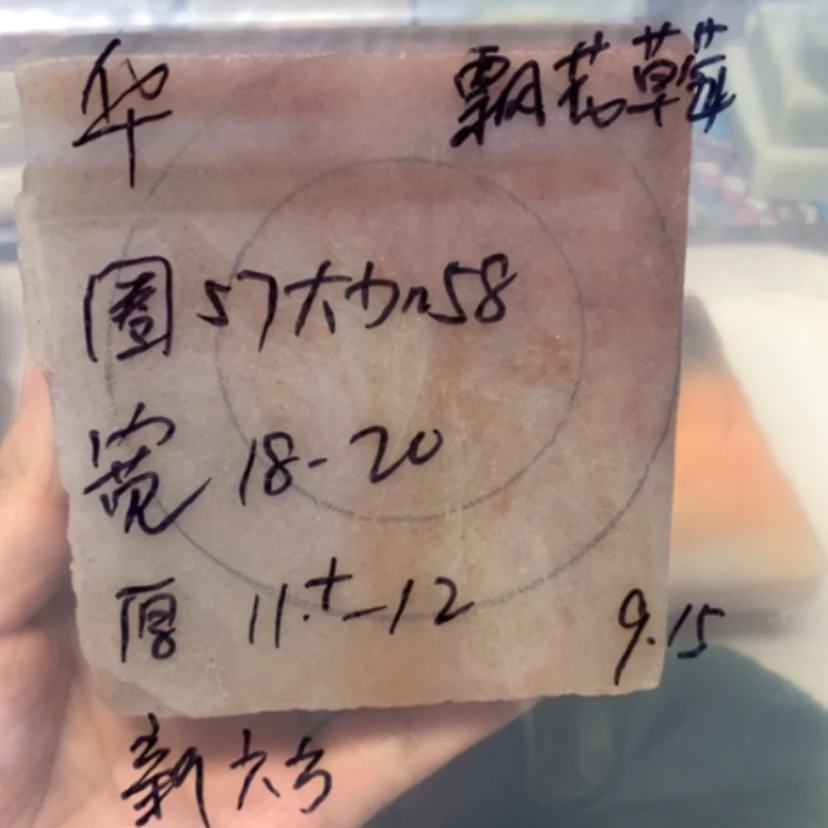 华
飘花草莓
圈57大加58
宽 18-20
厚 11.+-12
9.15
新